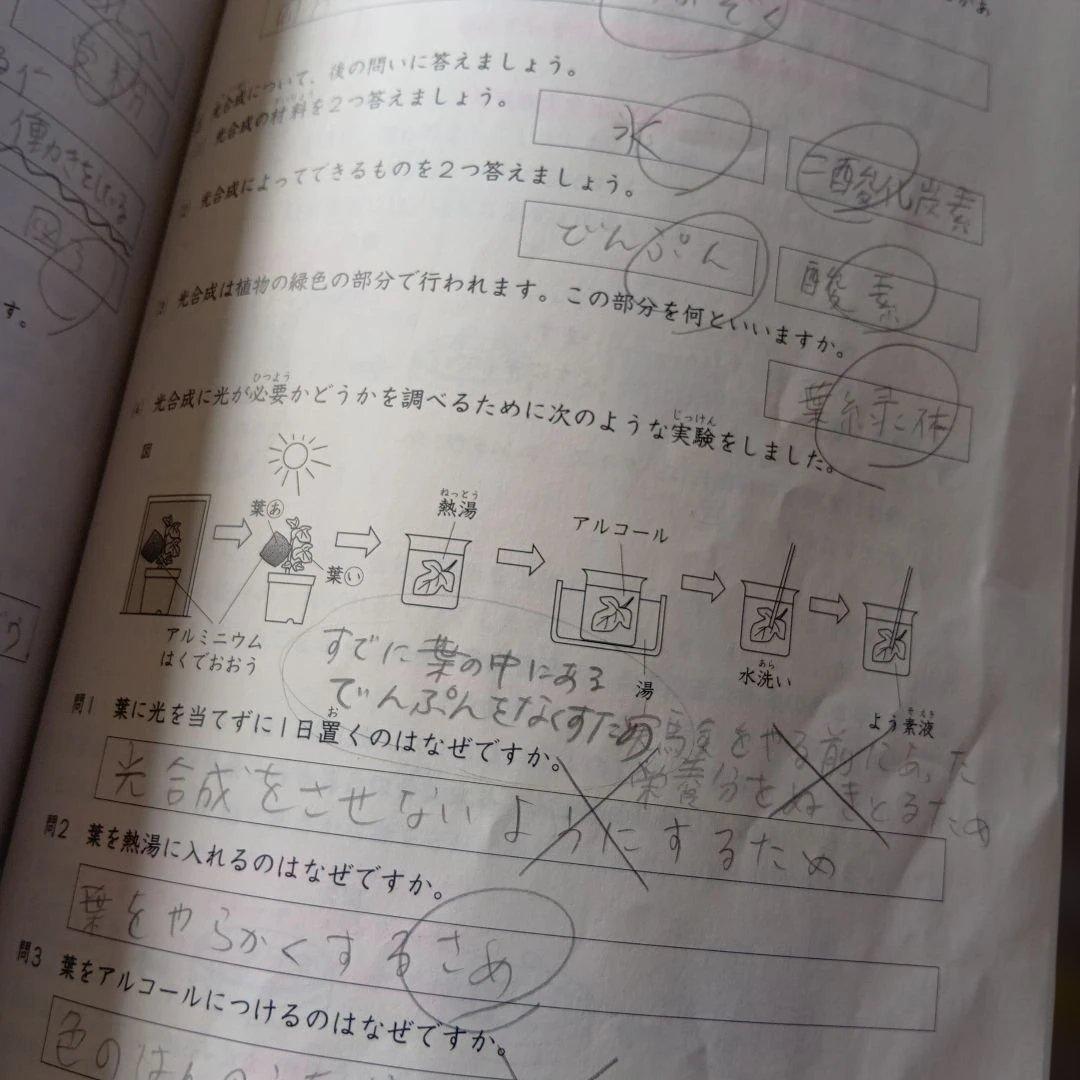 光合成について、後の問いに答えましょう。
光合成の材料を2つ答えましょう。
水
二酸化炭素
光合成によってできるものを2つ答えましょう。
でんぷん
酸素
光合成は植物の緑色の部分で行われます。この部分を何といいますか。
葉緑体
ひつよう
じっけん
光合成に光が必要かどうかを調べるために次のような実験をしました。
図
葉あ
葉い
ねっとう
熱湯
アルコール
アルミニウム
はくでおおう
湯
あら
水洗い
そえき
よう素液
すでに葉の中にある
でんぷんをなくすため
お
問1 葉に光を当てずに1日置くのはなぜですか。
をやる前にあった
栄養分をぬきとるため
光合成をさせないようにするため
問2 葉を熱湯に入れるのはなぜですか。
葉をやらかくするさめ
問3 葉をアルコールにつけるのはなぜですか。
色の
働きをしている
図
す。